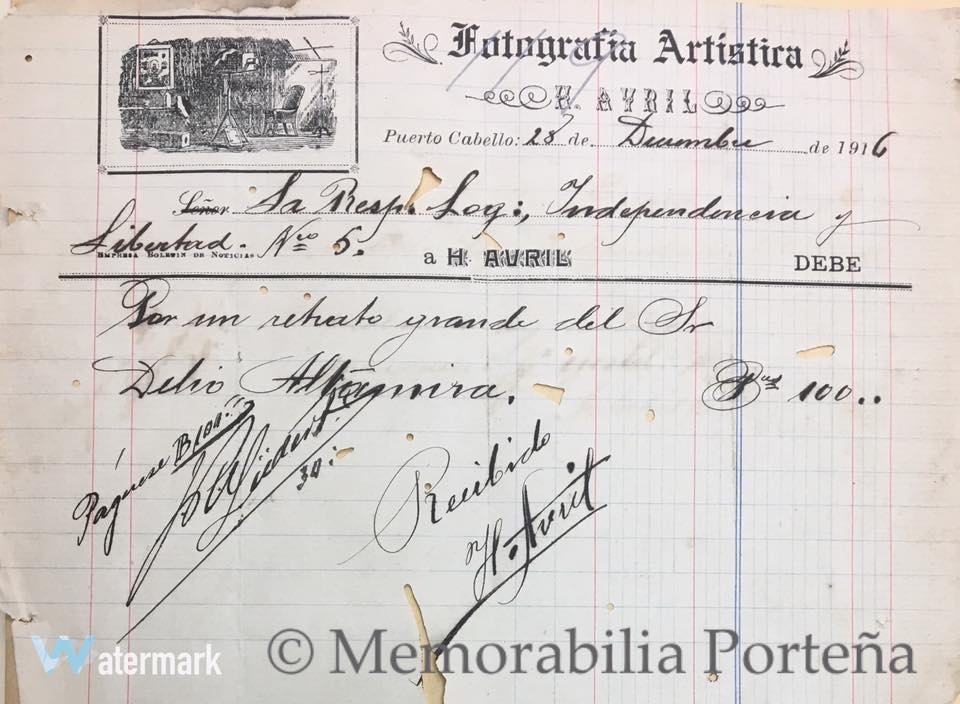 Fotografía Artística
H. AVRIL
Puerto Cabello: 28 de Diciembre de 1916
Señor La Resp∴ Log∴, Independencia y
Libertad. Nro 5.
EMPRESA BOLETIN DE NOTICIAS
a H. AVRIL DEBE
Por un retrato grande del Sr
Delio Altamira. 100..
Páguese
Recibido
H. Avril
Watermark
© Memorabilia Porteña